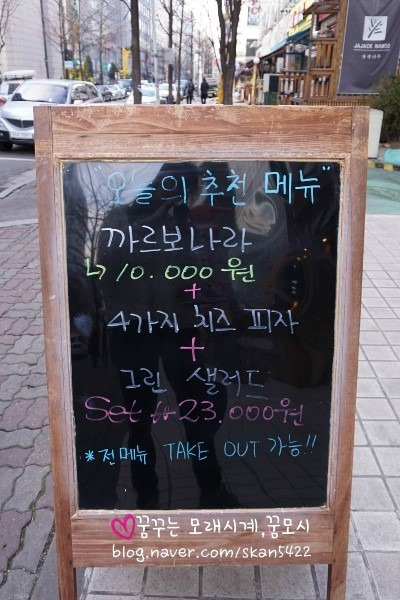 JAJACK NAMOO
자작나무
"오늘의 추천 메뉴"
까르보나라
↳ 10.000원
+
4가지 치즈 피자
+
그린 샐러드
Set ₩23.000원
*전메뉴 TAKE OUT 가능!!
♡꿈꾸는 모래시계,꿈모시
blog.naver.com/skan5422